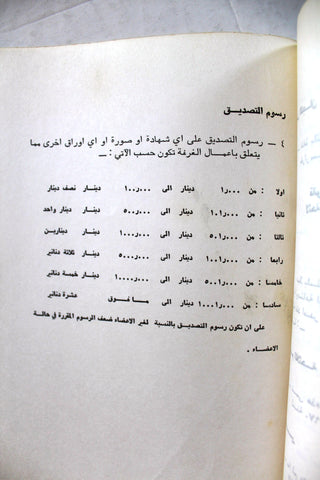 رسوم التصديق
٤ — رسوم التصديق على اي شهادة او صورة او اي اوراق اخرى مما
يتعلق باعمال الغرفة تكون حسب الآتي : —
اولا : من ١٫٠٠٠ دينار الى ١٠٠٫٠٠٠ دينار نصف دينار
ثانيا : من ١٠٠٫٠٠١ دينار الى ٥٠٠٫٠٠٠ دينار دينار واحد
ثالثا : من ٥٠٠٫٠٠١ دينار الى ١٠٠٠٫٠٠٠ دينار دينارين
رابعا : من ١٠٠٠٫٠٠١ دينار الى ٥٠٠٠٫٠٠٠ دينار ثلاثة دنانير
خامسا : من ٥٠٠٠٫٠٠١ دينار الى ١٠٠٠٠٫٠٠٠ دينار خمسة دنانير
سادسا : من ١٠٠٠٠٫٠٠١ دينار الى ما فوق عشرة دنانير
على ان تكون رسوم التصديق بالنسبة لغير الاعضاء ضعف الرسوم المقررة في حالة
الاعضاء .